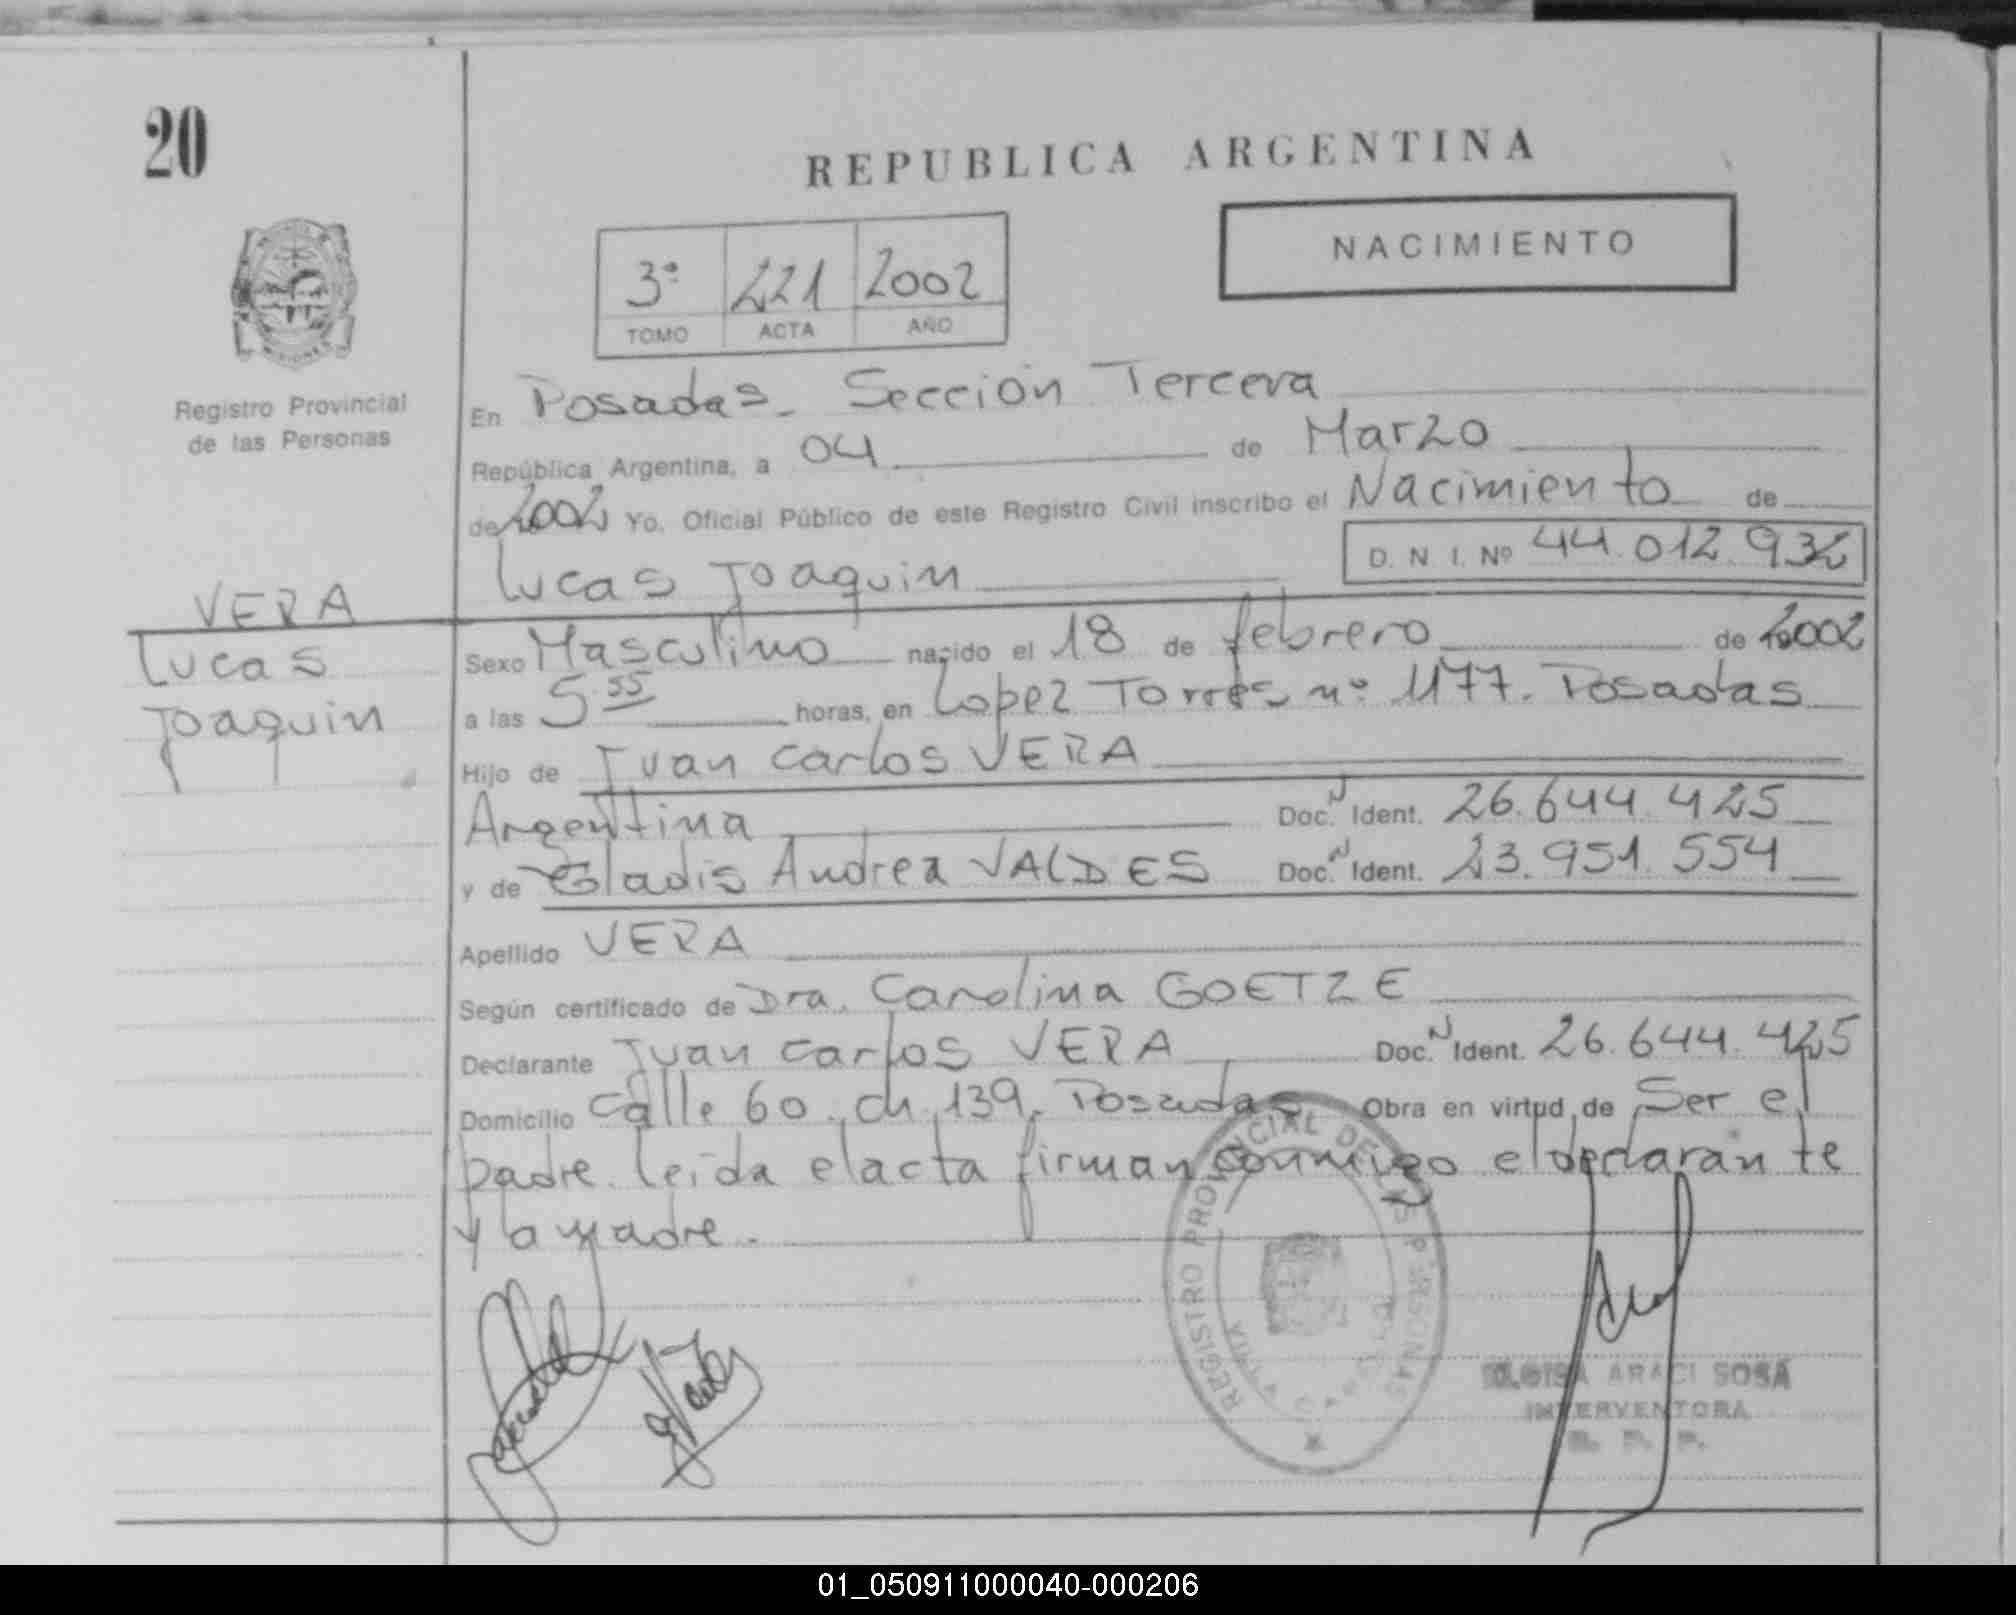 20
REPUBLICA ARGENTINA
NACIMIENTO
3º 221 2002
TOMO ACTA AÑO
Registro Provincial
de las Personas
En Posadas. Sección Tercera
República Argentina, a 04 de Marzo
de 2002 Yo, Oficial Público de este Registro Civil inscribo el Nacimiento de
Lucas Joaquin D. N. I. Nº 44.012.932
VERA
Lucas
Joaquin
Sexo Masculino nacido el 18 de febrero de 2002
a las 5 55 horas, en Lopez Torres nº 1177. Posadas
Hijo de Juan Carlos VERA
Argentina Doc. N Ident. 26.644.425
y de Gladis Andrea VALDES Doc. N Ident. 23.951.554
Apellido VERA
Según certificado de Dra. Carolina GOETZE
Declarante Juan Carlos VERA Doc. N Ident. 26.644.425
Domicilio Calle 60. ch 139. Posadas Obra en virtud de Ser el
padre. leida el acta firman conmigo el declarante
y la madre.
REGISTRO PROVINCIAL DE LAS PERSONAS
ARACI SOSA
INTERVENTORA
01_050911000040-000206